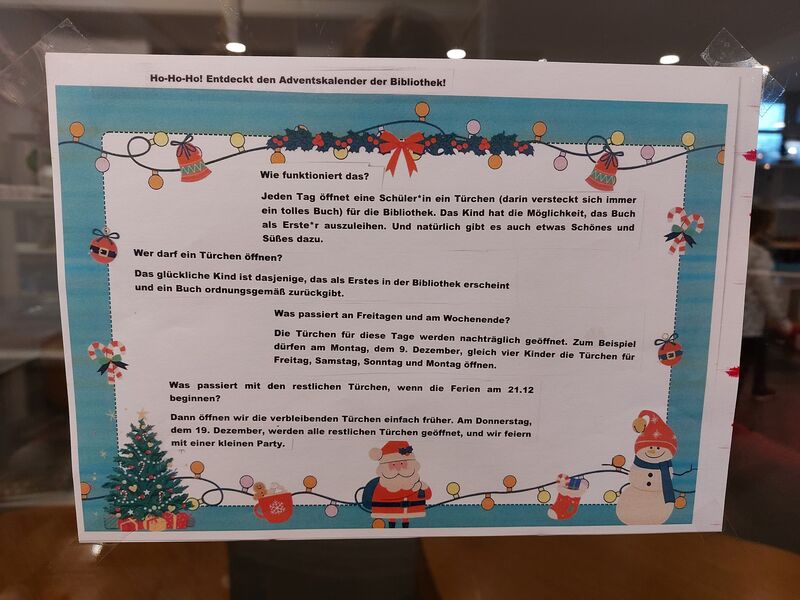 Ho-Ho-Ho! Entdeckt den Adventskalender der Bibliothek!
Wie funktioniert das?
Jeden Tag öffnet eine Schüler*in ein Türchen (darin versteckt sich immer
ein tolles Buch) für die Bibliothek. Das Kind hat die Möglichkeit, das Buch
als Erste*r auszuleihen. Und natürlich gibt es auch etwas Schönes und
Süßes dazu.
Wer darf ein Türchen öffnen?
Das glückliche Kind ist dasjenige, das als Erstes in der Bibliothek erscheint
und ein Buch ordnungsgemäß zurückgibt.
Was passiert an Freitagen und am Wochenende?
Die Türchen für diese Tage werden nachträglich geöffnet. Zum Beispiel
dürfen am Montag, dem 9. Dezember, gleich vier Kinder die Türchen für
Freitag, Samstag, Sonntag und Montag öffnen.
Was passiert mit den restlichen Türchen, wenn die Ferien am 21.12
beginnen?
Dann öffnen wir die verbleibenden Türchen einfach früher. Am Donnerstag,
dem 19. Dezember, werden alle restlichen Türchen geöffnet, und wir feiern
mit einer kleinen Party.